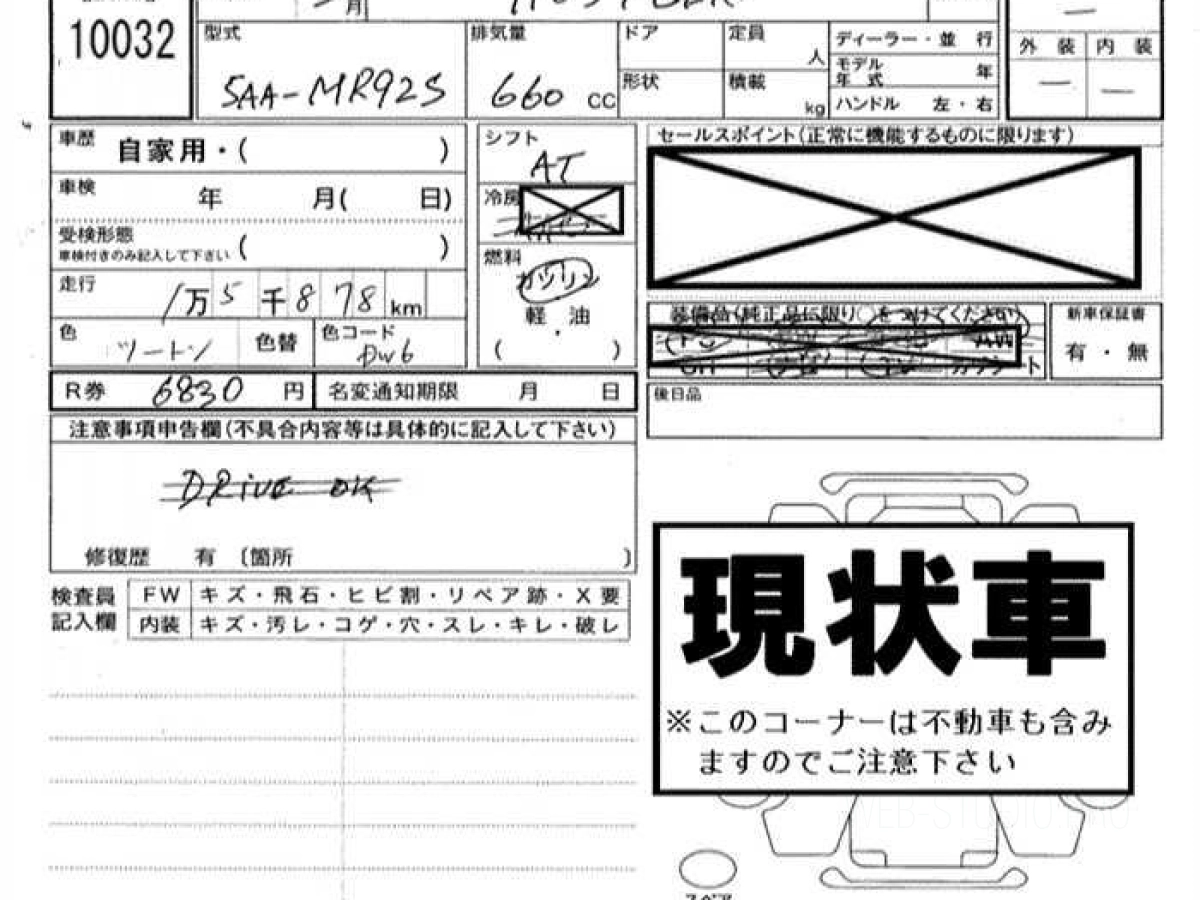 月
10032
型式
5AA-MR92S
排気量
660 cc
ドア
形状
定員
人
積載
kg
ディーラー・並 行
モデル
年 式
年
ハンドル 左・右
外 装 内 装
— —
車歴 自家用・( )
車検 年 月( 日)
受検形態
車検付きのみ記入して下さい ( )
走行 1万5千878km
色 ツートン 色替 色コード
DW6
R券 6830 円 名変通知期限 月 日
シフト
AT
冷房
燃料
ガソリン
・
軽 油
( )
セールスポイント(正常に機能するものに限ります)
装備品(純正品に限り○をつけてください)
新車保証書
有 ・ 無
後日品
注意事項申告欄(不具合内容等は具体的に記入して下さい)
DRive OK
修復歴 有 〔箇所 〕
検査員
記入欄
FW キズ・飛石・ヒビ割・リペア跡・X要
内装 キズ・汚レ・コゲ・穴・スレ・キレ・破レ
現状車
※このコーナーは不動車も含み
ますのでご注意下さい